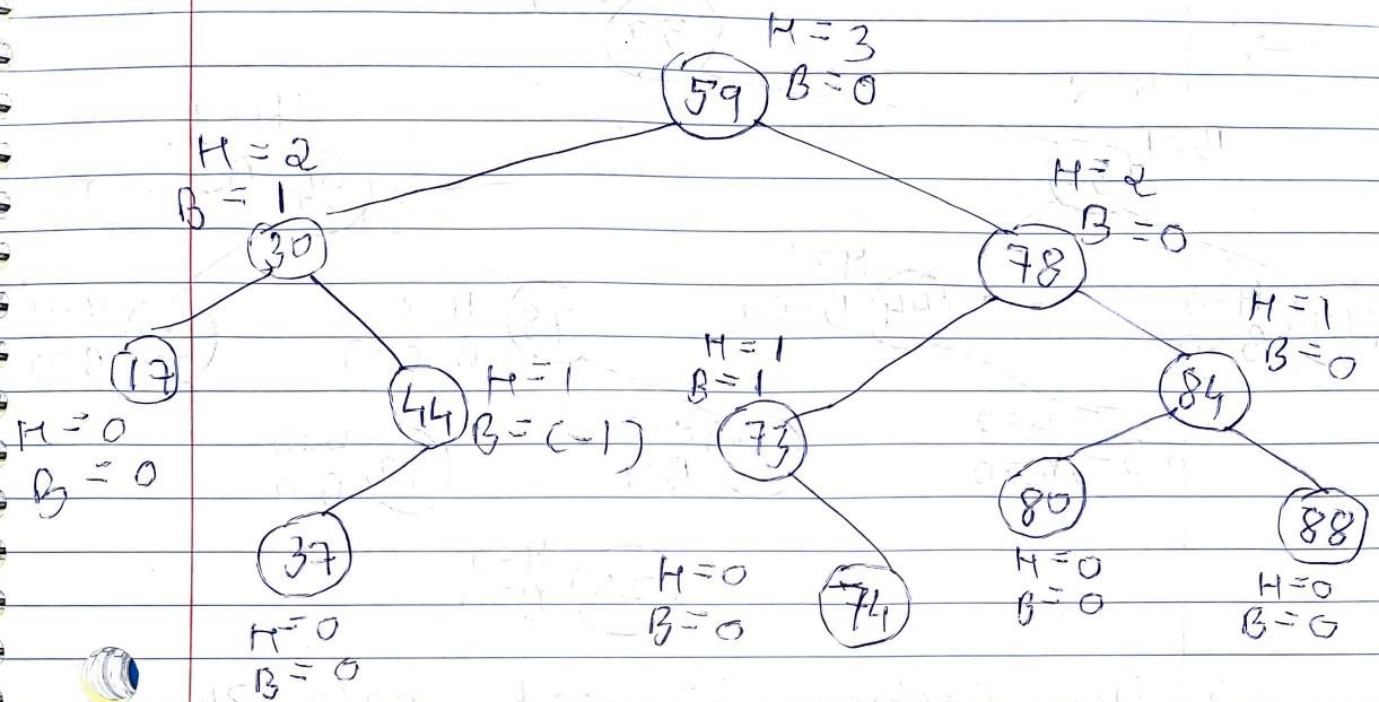 H = 3
59
B = 0
H = 2
B = 1
30
H = 2
B = 0
78
17
H = 0
B = 0
44
H = 1
B = (-1)
H = 1
B = 1
73
H = 1
B = 0
84
37
H = 0
B = 0
H = 0
B = 0
74
80
H = 0
B = 0
88
H = 0
B = 0